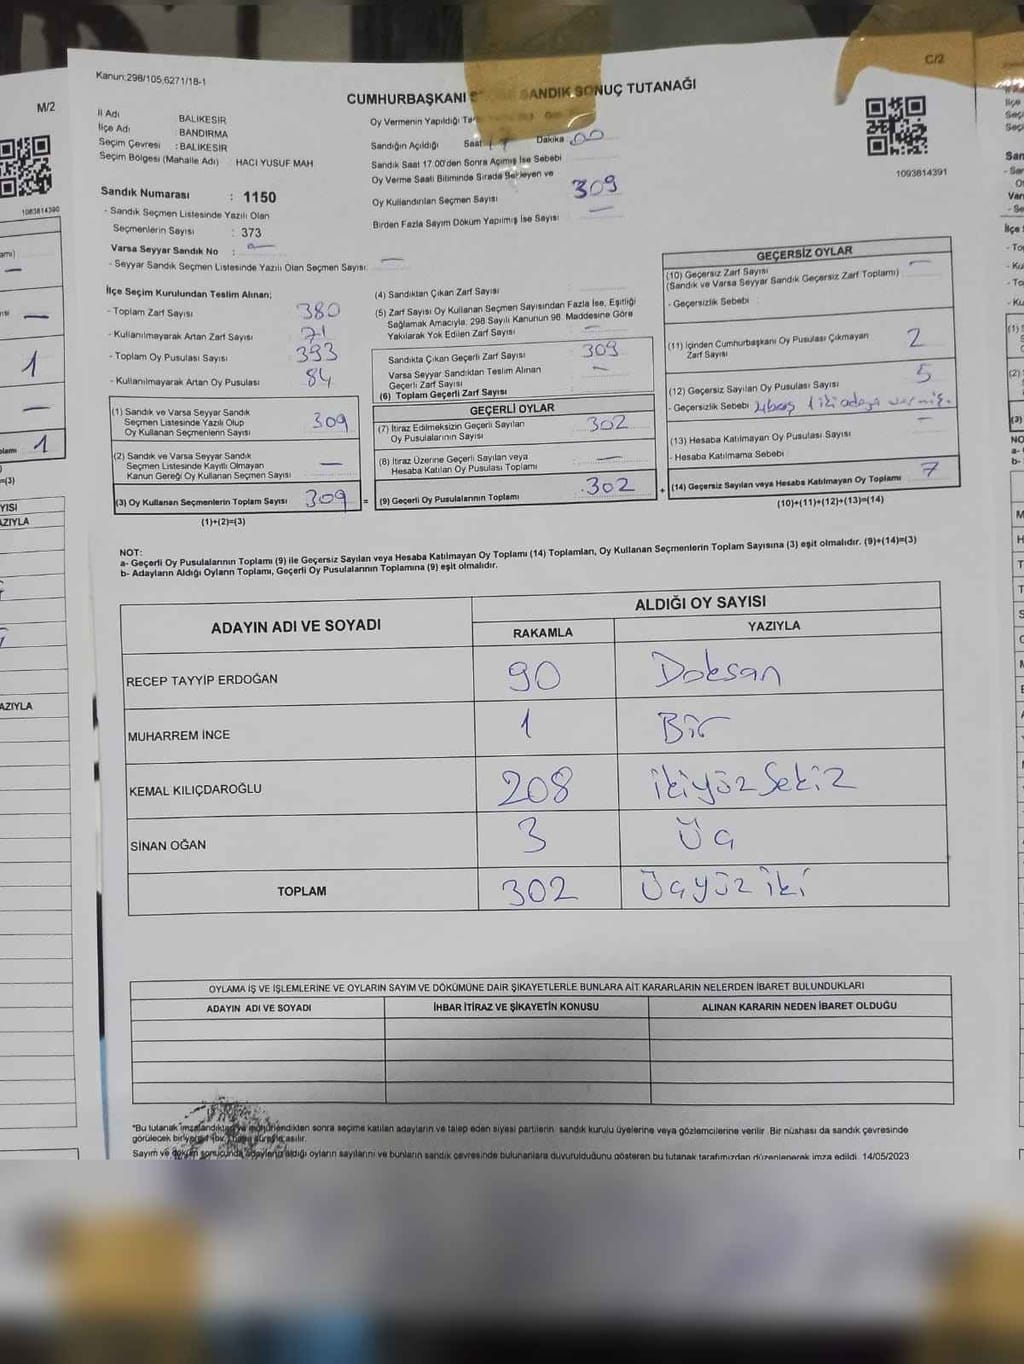 Kanun:298/105,6271/18-1
C/2
CUMHURBAŞKANI SANDIK SONUÇ TUTANAĞI
İl Adı BALIKESİR
İlçe Adı : BANDIRMA
Seçim Çevresi : BALIKESİR
Seçim Bölgesi (Mahalle Adı) HACI YUSUF MAH
Sandık Numarası : 1150
- Sandık Seçmen Listesinde Yazılı Olan
Seçmenlerin Sayısı : 373
Varsa Seyyar Sandık No : -
- Seyyar Sandık Seçmen Listesinde Yazılı Olan Seçmen Sayısı: -
Oy Vermenin Yapıldığı
Sandığın Açıldığı Saat 17 Dakika 00
Sandık Saat 17.00'den Sonra Açımış İse Sebebi
Oy Verme Saati Bitiminde Sırada Bekleyen ve
Oy Kullandırılan Seçmen Sayısı 309
Birden Fazla Sayım Döküm Yapılmış İse Sayısı -
1093814391
İlçe Seçim Kurulundan Teslim Alınan;
- Toplam Zarf Sayısı 380
- Kullanılmayarak Artan Zarf Sayısı 71
- Toplam Oy Pusulası Sayısı 393
- Kullanılmayarak Artan Oy Pusulası 84
(1) Sandık ve Varsa Seyyar Sandık
Seçmen Listesinde Yazılı Olup
Oy Kullanan Seçmenlerin Sayısı 309
(2) Sandık ve Varsa Seyyar Sandık
Seçmen Listesinde Kayıtlı Olmayan
Kanun Gereği Oy Kullanan Seçmen Sayısı -
(3) Oy Kullanan Seçmenlerin Toplam Sayısı 309 =
(1)+(2)=(3)
(4) Sandıktan Çıkan Zarf Sayısı
(5) Zarf Sayısı Oy Kullanan Seçmen Sayısından Fazla İse, Eşitliği
Sağlamak Amacıyla, 298 Sayılı Kanunun 98. Maddesine Göre
Yakılarak Yok Edilen Zarf Sayısı -
Sandıkta Çıkan Geçerli Zarf Sayısı 309
Varsa Seyyar Sandıktan Teslim Alınan
Geçerli Zarf Sayısı -
(6) Toplam Geçerli Zarf Sayısı
GEÇERLİ OYLAR
(7) İtiraz Edilmeksizin Geçerli Sayılan
Oy Pusulalarının Sayısı 302
(8) İtiraz Üzerine Geçerli Sayılan veya
Hesaba Katılan Oy Pusulası Toplamı -
(9) Geçerli Oy Pusulalarının Toplamı 302 +
GEÇERSİZ OYLAR
(10) Geçersiz Zarf Sayısı -
(Sandık ve Varsa Seyyar Sandık Geçersiz Zarf Toplamı)
- Geçersizlik Sebebi :
(11) İçinden Cumhurbaşkanı Oy Pusulası Çıkmayan
Zarf Sayısı 2
(12) Geçersiz Sayılan Oy Pusulası Sayısı 5
- Geçersizlik Sebebi
(13) Hesaba Katılmayan Oy Pusulası Sayısı -
- Hesaba Katılmama Sebebi
(14) Geçersiz Sayılan veya Hesaba Katılmayan Oy Toplamı 7
(10)+(11)+(12)+(13)=(14)
NOT:
a- Geçerli Oy Pusulalarının Toplamı (9) ile Geçersiz Sayılan veya Hesaba Katılmayan Oy Toplamı (14) Toplamları, Oy Kullanan Seçmenlerin Toplam Sayısına (3) eşit olmalıdır. (9)+(14)=(3)
b- Adayların Aldığı Oyların Toplamı, Geçerli Oy Pusulalarının Toplamına (9) eşit olmalıdır.
ADAYIN ADI VE SOYADI ALDIĞI OY SAYISI
RAKAMLA YAZIYLA
RECEP TAYYİP ERDOĞAN 90 Doksan
MUHARREM İNCE 1 Bir
KEMAL KILIÇDAROĞLU 208 ikiyüzSekiz
SİNAN OĞAN 3 Üç
TOPLAM 302 Üçyüz iki
OYLAMA İŞ VE İŞLEMLERİNE VE OYLARIN SAYIM VE DÖKÜMÜNE DAİR ŞİKAYETLERLE BUNLARA AİT KARARLARIN NELERDEN İBARET BULUNDUKLARI
ADAYIN ADI VE SOYADI İHBAR İTİRAZ VE ŞİKAYETİN KONUSU ALINAN KARARIN NEDEN İBARET OLDUĞU
"Bu tutanak imzalandıktan ve mühürlendikten sonra seçime katılan adayların ve talep eden siyasi partilerin sandık kurulu üyelerine veya gözlemcilerine verilir. Bir nüshası da sandık çevresinde
görülecek bir yere asılır.
Sayım ve döküm sonucunda adayların aldığı oyların sayılarını ve bunların sandık çevresinde bulunanlara duyurulduğunu gösteren bu tutanak tarafımızdan düzenlenerek imza edildi. 14/05/2023
M/2
1093814390
1
1
=(3)
YAZIYLA